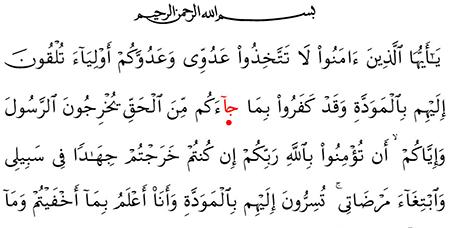 بسم الله الرحمن الرحيم
يَٰٓأَيُّهَا ٱلَّذِينَ ءَامَنُوا۟ لَا تَتَّخِذُوا۟ عَدُوِّى وَعَدُوَّكُمْ أَوْلِيَآءَ تُلْقُونَ
إِلَيْهِم بِٱلْمَوَدَّةِ وَقَدْ كَفَرُوا۟ بِمَا جَآءَكُم مِّنَ ٱلْحَقِّ يُخْرِجُونَ ٱلرَّسُولَ
وَإِيَّاكُمْ ۙ أَن تُؤْمِنُوا۟ بِٱللَّهِ رَبِّكُمْ إِن كُنتُمْ خَرَجْتُمْ جِهَٰدًا فِى سَبِيلِى
وَٱبْتِغَآءَ مَرْضَاتِى ۚ تُسِرُّونَ إِلَيْهِم بِٱلْمَوَدَّةِ وَأَنَا۠ أَعْلَمُ بِمَآ أَخْفَيْتُمْ وَمَآ